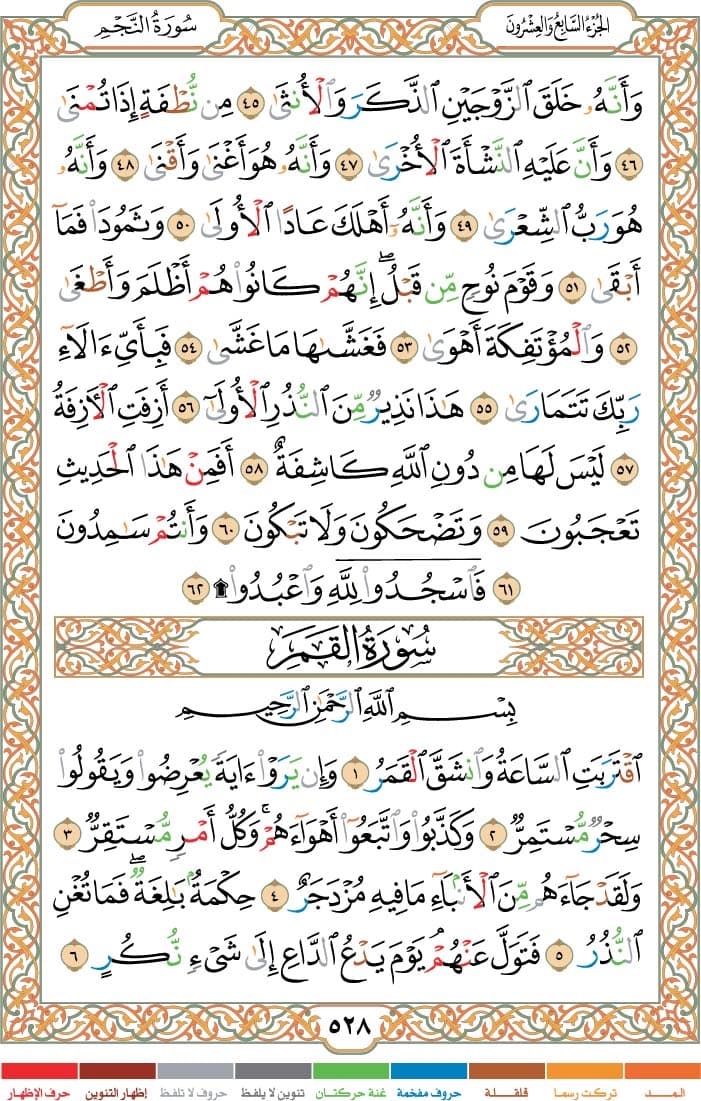 الجزء السابع والعشرون
سورة النجم
وَأَنَّهُۥ خَلَقَ ٱلزَّوْجَيْنِ ٱلذَّكَرَ وَٱلْأُنثَىٰ ٤٥ مِن نُّطْفَةٍ إِذَا تُمْنَىٰ
٤٦ وَأَنَّ عَلَيْهِ ٱلنَّشْأَةَ ٱلْأُخْرَىٰ ٤٧ وَأَنَّهُۥ هُوَ أَغْنَىٰ وَأَقْنَىٰ ٤٨ وَأَنَّهُۥ
هُوَ رَبُّ ٱلشِّعْرَىٰ ٤٩ وَأَنَّهُۥٓ أَهْلَكَ عَادًا ٱلْأُولَىٰ ٥٠ وَثَمُودَا۟ فَمَآ
أَبْقَىٰ ٥١ وَقَوْمَ نُوحٍ مِّن قَبْلُ ۖ إِنَّهُمْ كَانُوا۟ هُمْ أَظْلَمَ وَأَطْغَىٰ
٥٢ وَٱلْمُؤْتَفِكَةَ أَهْوَىٰ ٥٣ فَغَشَّىٰهَا مَا غَشَّىٰ ٥٤ فَبِأَىِّ ءَالَآءِ
رَبِّكَ تَتَمَارَىٰ ٥٥ هَٰذَا نَذِيرٌ مِّنَ ٱلنُّذُرِ ٱلْأُولَىٰٓ ٥٦ أَزِفَتِ ٱلْءَازِفَةُ
٥٧ لَيْسَ لَهَا مِن دُونِ ٱللَّهِ كَاشِفَةٌ ٥٨ أَفَمِنْ هَٰذَا ٱلْحَدِيثِ
تَعْجَبُونَ ٥٩ وَتَضْحَكُونَ وَلَا تَبْكُونَ ٦٠ وَأَنتُمْ سَٰمِدُونَ
٦١ فَٱسْجُدُوا۟ لِلَّهِ وَٱعْبُدُوا۟ ۩ ٦٢
سُورَةُ القَمَرِ
بِسْمِ ٱللَّهِ ٱلرَّحْمَٰنِ ٱلرَّحِيمِ
ٱقْتَرَبَتِ ٱلسَّاعَةُ وَٱنشَقَّ ٱلْقَمَرُ ١ وَإِن يَرَوْا۟ ءَايَةً يُعْرِضُوا۟ وَيَقُولُوا۟
سِحْرٌ مُّسْتَمِرٌّ ٢ وَكَذَّبُوا۟ وَٱتَّبَعُوٓا۟ أَهْوَآءَهُمْ ۚ وَكُلُّ أَمْرٍ مُّسْتَقِرٌّ ٣
وَلَقَدْ جَآءَهُم مِّنَ ٱلْأَنۢبَآءِ مَا فِيهِ مُزْدَجَرٌ ٤ حِكْمَةٌۢ بَٰلِغَةٌ ۖ فَمَا تُغْنِ
ٱلنُّذُرُ ٥ فَتَوَلَّ عَنْهُمْ ۘ يَوْمَ يَدْعُ ٱلدَّاعِ إِلَىٰ شَىْءٍ نُّكُرٍ ٦
٥٢٨
المـــد تركت رسما قلقـلة حروف مفخمة غنة حركتان تنوين لا يلفظ حروف لا تلفظ إظهار التنوين حرف الإظهار